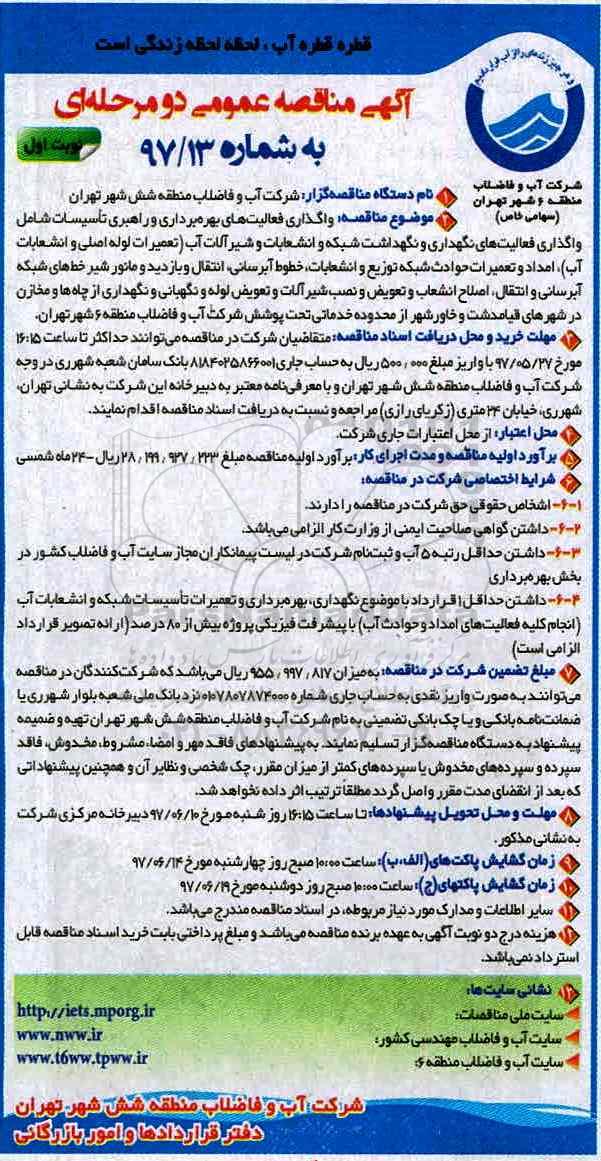 قطره قطره آب ، لحظه لحظه زندگی است
آگهی مناقصه عمومی دو مرحله‌ای
به شماره ۹۷/۱۳
نوبت اول
شرکت آب و فاضلاب
منطقه ۶ شهر تهران
(سهامی خاص)
۱ نام دستگاه مناقصه‌گزار: شرکت آب و فاضلاب منطقه شش شهر تهران
۲ موضوع مناقصه: واگذاری فعالیت‌های بهره‌برداری و راهبری تأسیسات شامل
واگذاری فعالیت‌های نگهداری و نگهداشت شبکه و انشعابات و شیرآلات آب (تعمیرات لوله اصلی و انشعابات
آب)، امداد و تعمیرات حوادث شبکه توزیع و انشعابات، خطوط آبرسانی، انتقال و بازدید و مانور شیر خط‌های شبکه
آبرسانی و انتقال، اصلاح انشعاب و تعویض و نصب شیرآلات و تعویض لوله و نگهبانی و نگهداری از چاه‌ها و مخازن
در شهر های قیامدشت و خاورشهر از محدوده خدماتی تحت پوشش شرکت آب و فاضلاب منطقه ۶ شهر تهران.
۳ مهلت خرید و محل دریافت اسناد مناقصه: متقاضیان شرکت در مناقصه می‌توانند حداکثر تا ساعت ۱۶:۱۵
مورخ ۹۷/۰۵/۲۷ با واریز مبلغ ۵۰۰٫۰۰۰ ریال به حساب جاری ۸۱۸۴۰۲۵۸۶۶۰۰۱ بانک سامان شعبه شهرری در وجه
شرکت آب و فاضلاب منطقه شش شهر تهران و با معرفی‌نامه معتبر به دبیرخانه این شرکت به نشانی تهران،
شهرری، خیابان ۲۴ متری (زکریای رازی) مراجعه و نسبت به دریافت اسناد مناقصه اقدام نمایند.
۴ محل اعتبار: از محل اعتبارات جاری شرکت.
۵ برآورد اولیه مناقصه و مدت اجرای کار: برآورد اولیه مناقصه مبلغ ۲۸٫۱۹۹٫۹۲۷٫۲۲۳ ریال -۲۴ ماه شمسی
۶ شرایط اختصاصی شرکت در مناقصه:
۶-۱- اشخاص حقوقی حق شرکت در مناقصه را دارند.
۶-۲- داشتن گواهی صلاحیت ایمنی از وزارت کار الزامی می‌باشد.
۶-۳- داشتن حداقل رتبه ۵ آب و ثبت‌نام شرکت در لیست پیمانکاران مجاز سایت آب و فاضلاب کشور در
بخش بهره‌برداری
۶-۴- داشتن حداقل ۱ قرارداد با موضوع نگهداری، بهره‌برداری و تعمیرات تأسیسات شبکه و انشعابات آب
(انجام کلیه فعالیت‌های امداد و حوادث آب) با پیشرفت فیزیکی پروژه بیش از ۸۰ درصد (ارائه تصویر قرارداد
الزامی است)
۷ مبلغ تضمین شرکت در مناقصه: به میزان ۹۵۵٫۹۹۷٫۸۱۷ ریال می‌باشد که شرکت‌کنندگان در مناقصه
می‌توانند به صورت واریز نقدی به حساب جاری شماره ۰۱۰۷۸۰۷۸۷۴۰۰۰ نزد بانک ملی شعبه بلوار شهرری یا
ضمانت‌نامه بانکی و یا چک بانکی تضمینی به نام شرکت آب و فاضلاب منطقه شش شهر تهران تهیه و ضمیمه
پیشنهاد به دستگاه مناقصه‌گزار تسلیم نمایند. به پیشنهادهای فاقد مهر و امضا، مشروط، مخدوش، فاقد
سپرده و سپرده‌های مخدوش یا سپرده‌های کمتر از میزان مقرر، چک شخصی و نظایر آن و همچنین پیشنهاداتی
که بعد از انقضای مدت مقرر واصل گردد مطلقاً ترتیب اثر داده نخواهد شد.
۸ مهلت و محل تحویل پیشنهادها: تا ساعت ۱۶:۱۵ روز شنبه مورخ ۹۷/۰۶/۱۰ دبیرخانه مرکزی شرکت
به نشانی مذکور.
۹ زمان گشایش پاکت‌های (الف، ب): ساعت ۱۰:۰۰ صبح روز چهارشنبه مورخ ۹۷/۰۶/۱۴
۱۰ زمان گشایش پاکتهای (ج): ساعت ۱۰:۰۰ صبح روز دوشنبه مورخ ۹۷/۰۶/۱۹
۱۱ سایر اطلاعات و مدارک مورد نیاز مربوطه، در اسناد مناقصه مندرج می‌باشد.
۱۲ هزینه درج دو نوبت آگهی به عهده برنده مناقصه می‌باشد و مبلغ پرداختی بابت خرید اسناد مناقصه قابل
استرداد نمی‌باشد.
۱۳ نشانی سایت‌ها:
سایت ملی مناقصات: http://iets.mporg.ir
سایت آب و فاضلاب مهندسی کشور: www.nww.ir
سایت آب و فاضلاب منطقه ۶: www.t6ww.tpww.ir
شرکت آب و فاضلاب منطقه شش شهر تهران
دفتر قراردادها و امور بازرگانی